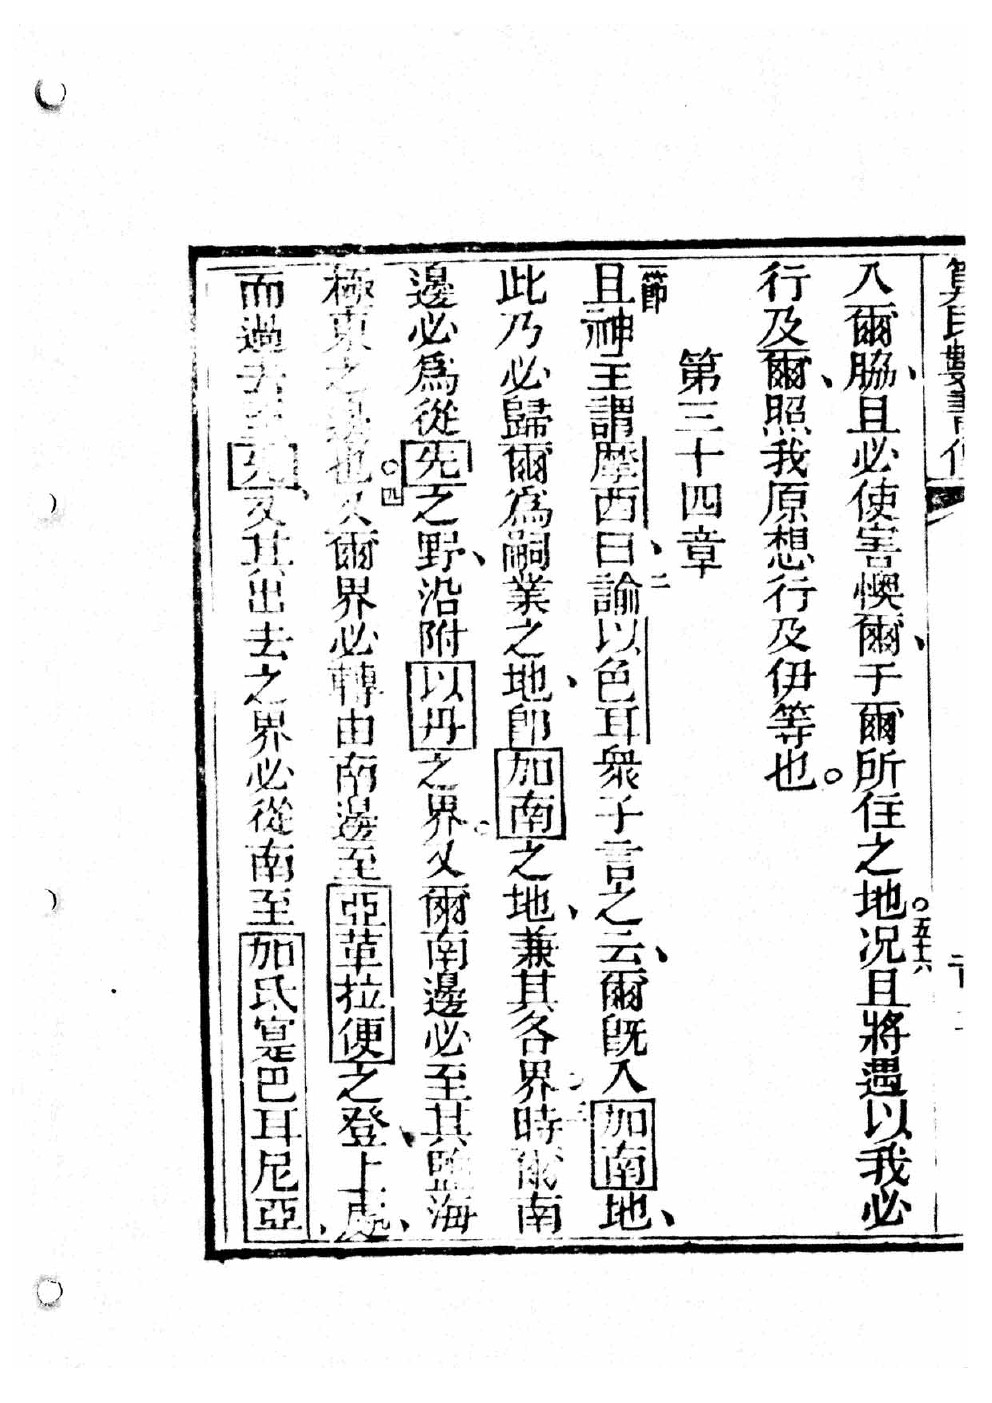 算民數書傳
入爾脇、且必使害懊爾、于爾所住之地。五十六況且將遇以我必
行及爾、照我原想行及伊等也。
第三十四章
一節且神主謂摩西曰、二諭以色耳衆子言之云、爾既入加南地、
此乃必歸爾爲嗣業之地、即加南之地、兼其各界時三爾南
邊必爲從先之野、沿附以丹之界。又爾南邊必至其鹽海
極東之邊也。四又爾界必轉由南邊至亞革拉便之登上處、
而過去至先、又其出去之界必從南至加氏寔巴耳尼亞、